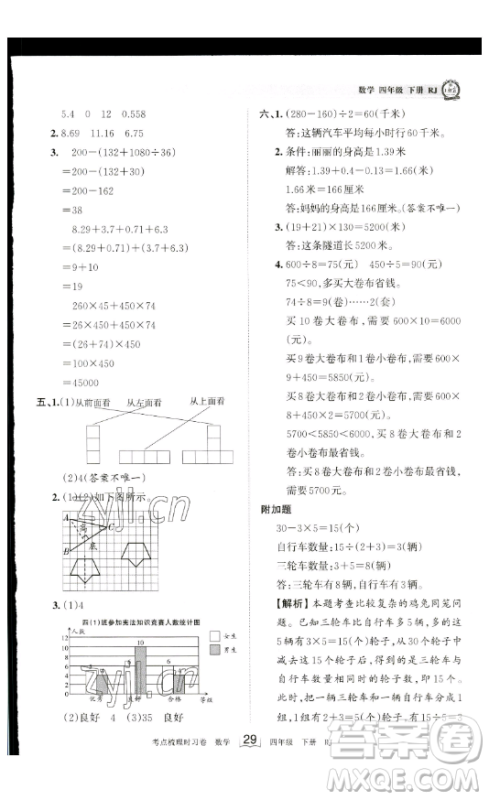 数学 四年级 下册 RJ
5.4 0 12 0.558
2. 8.69 11.16 6.75
3. 200-(132+1080÷36)
=200-(132+30)
=200-162
=38
8.29+3.7+0.71+6.3
=(8.29+0.71)+(3.7+6.3)
=9+10
=19
260×45+450×74
=26×450+450×74
=(26+74)×450
=100×450
=45000
五、1. (1)从前面看 从左面看 从上面看
(2)4(答案不唯一)
2. (1)(2)如下图所示。
A
C
B
高
底
3. (1)4
四(1)班参加宪法知识竞赛人数统计图
人数
女生
男生
12
10
8
6
4
2
0
10
6
4
优秀
良好
等级
(2)良好 4 (3)35 良好
六、1. (280-160)÷2=60(千米)
答:这辆汽车平均每小时行60千米。
2. 条件:丽丽的身高是1.39米
解答:1.39+0.4-0.13=1.66(米)
1.66米=166厘米
答:妈妈的身高是166厘米。(答案不唯一)
3. (19+21)×130=5200(米)
答:这条隧道长5200米。
4. 600÷8=75(元) 450÷5=90(元)
75<90,多买大卷布省钱。
74÷8=9(卷)……2(套)
买10卷大卷布,需要600×
10=6000(元)。
买9卷大卷布和1卷小卷布,需要600×
9+450=5850(元)。
买8卷大卷布和2卷小卷布,需要600×
8+450×2=5700(元)。
5700<5850<6000,买8卷大卷布和2
卷小卷布省钱。
答:买8卷大卷布和2卷小卷布最省钱,
需要5700元。
附加题
30-3×5=15(个)
自行车数量:15÷(2+3)=3(辆)
三轮车数量:3+5=8(辆)
答:三轮车有8辆,自行车有3辆。
【解析】本题考查比较复杂的鸡兔同笼问
题。三轮车数量比自行车多5辆,多了
3×5=15(个)轮子,用30个轮子
减去多的15个轮子后,还剩15个轮子,此
时三轮车与自行车数量相等,
把一辆三轮车和一辆自行车看成一组,
一组一共有5个轮子,
考点梳理时习卷 数学 29 四年级 下册 RJ
zyjl.cn
zyjl.cn
答案圈
MXQE.COM